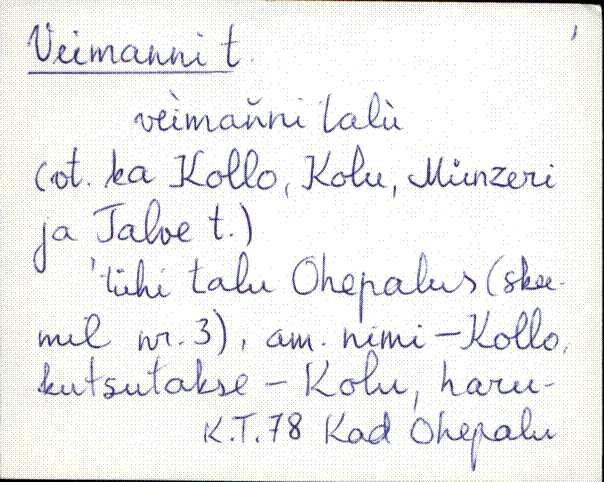 Veimanni t.
vèimaňni talù
(vt. ka Kollo, Kolu, Münzeri
ja Talve t.)
'tühi talu Ohepalus (skee-
mil nr. 3), am. nimi – Kollo,
kutsutakse – Kolu, haru-
K.T.78 Kad Ohepalu